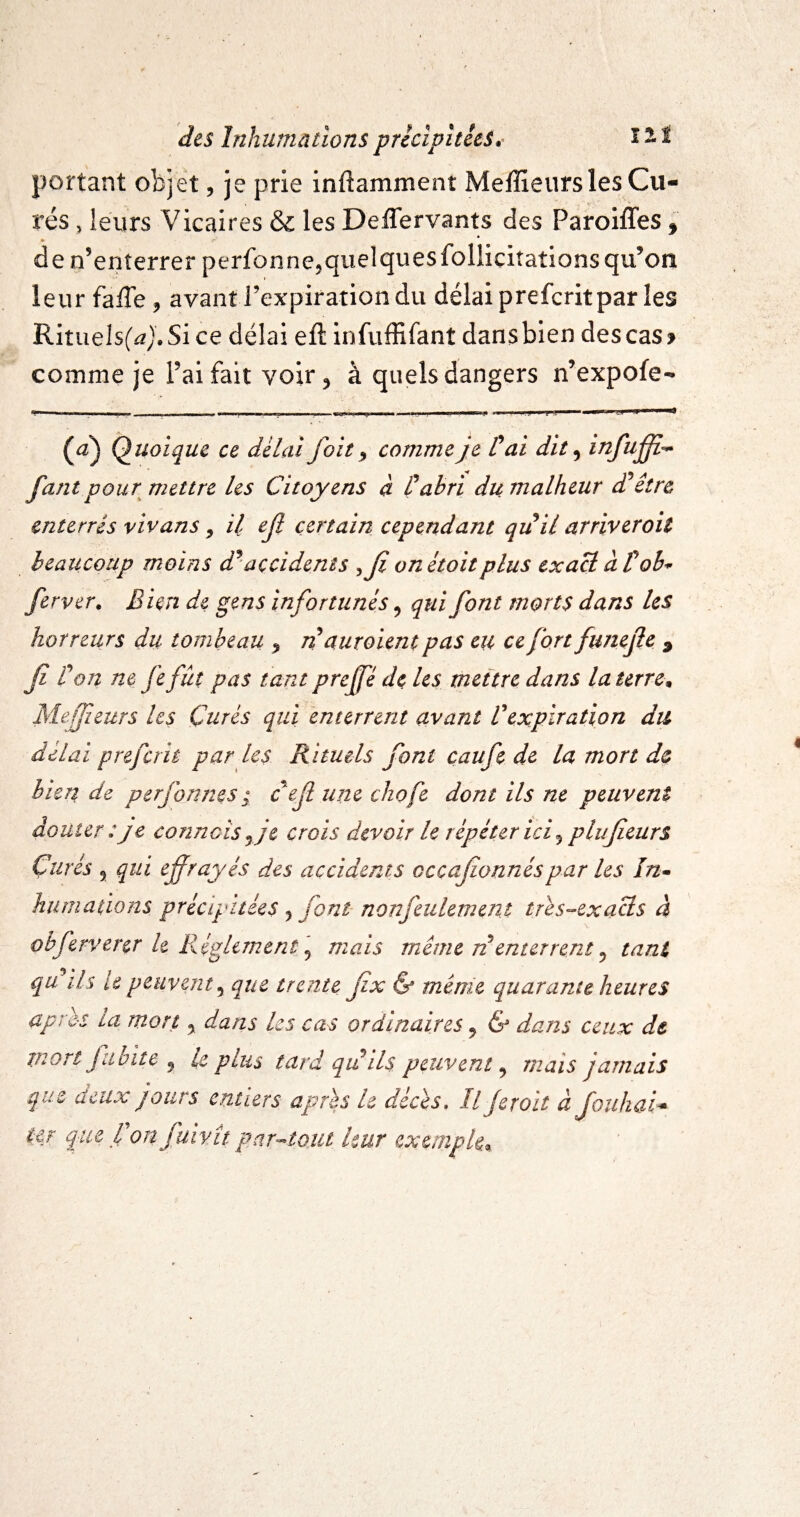 des Inhumations précipitées. 121
portant objet, je prie inſtamment Meſſieurs les Cu-
rés, leurs Vicaires & les Deſſervants des Paroiſſes,
de n’enterrer perſonne, quelques ſollicitations qu’on
leur faſſe, avant l’expiration du délai preſcrit par les
Rituels(a). Si ce délai eſt inſuffiſant dans bien des cas,
comme je l’ai fait voir, à quels dangers n’expoſe-
(a) Quoique ce délai ſoit, comme je l’ai dit, inſuffi-
ſant pour mettre les Citoyens à l’abri du malheur d’être
enterrés vivans, il eſt certain cependant qu’il arriveroit
beaucoup moins d’accidents, ſi on étoit plus exact à l’ob-
ſerver. Bien de gens infortunés, qui ſont morts dans les
horreurs du tombeau, n’auroient pas eu ce ſort funeſte,
ſi l’on ne ſe fût pas tant preſſé de les mettre dans la terre.
Meſſieurs les Curés qui enterrent avant l’expiration du
délai preſcrit par les Rituels ſont cauſe de la mort de
bien de perſonnes; c’eſt une choſe dont ils ne peuvent
douter : je connois, je crois devoir le répéter ici, pluſieurs
Curés, qui effrayés des accidents occaſionnés par les In-
humations précipitées, ſont nonſeulement très-exacts à
obſerverer le Réglement, mais même n’enterrent, tant
qu’ils le peuvent, que trente ſix & même quarante heures
après la mort, dans les cas ordinaires, & dans ceux de
mort ſubite, le plus tard qu’ils peuvent, mais jamais
que deux jours entiers après le décès. Il ſeroit à ſouhai-
ter que l’on ſuivît par-tout leur exemple.